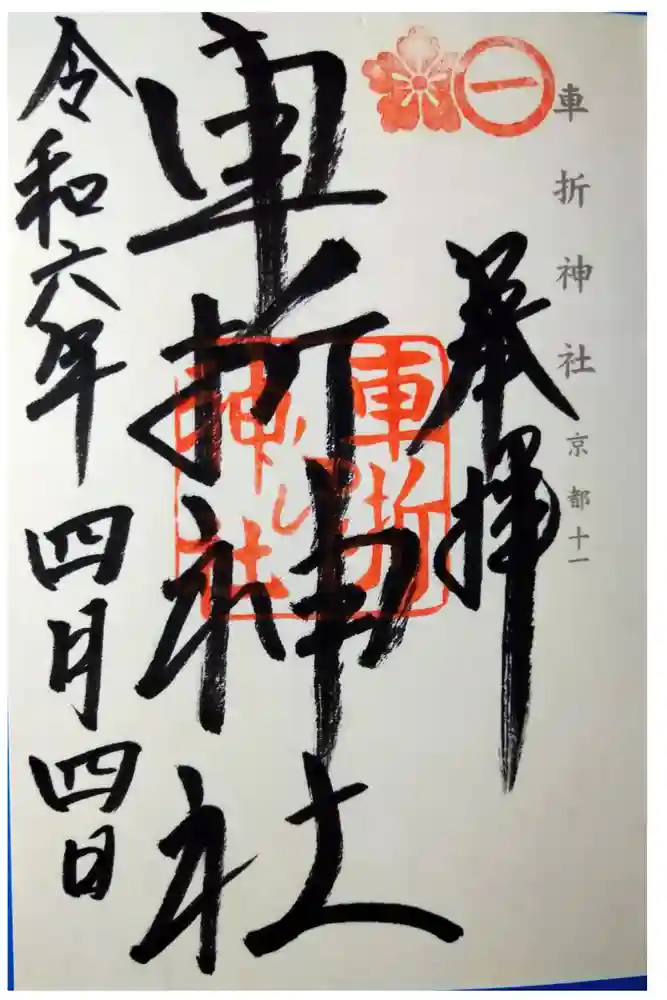 車折神社 京都十一
奉拝
車折神社
車折
神社
令和六年四月四日